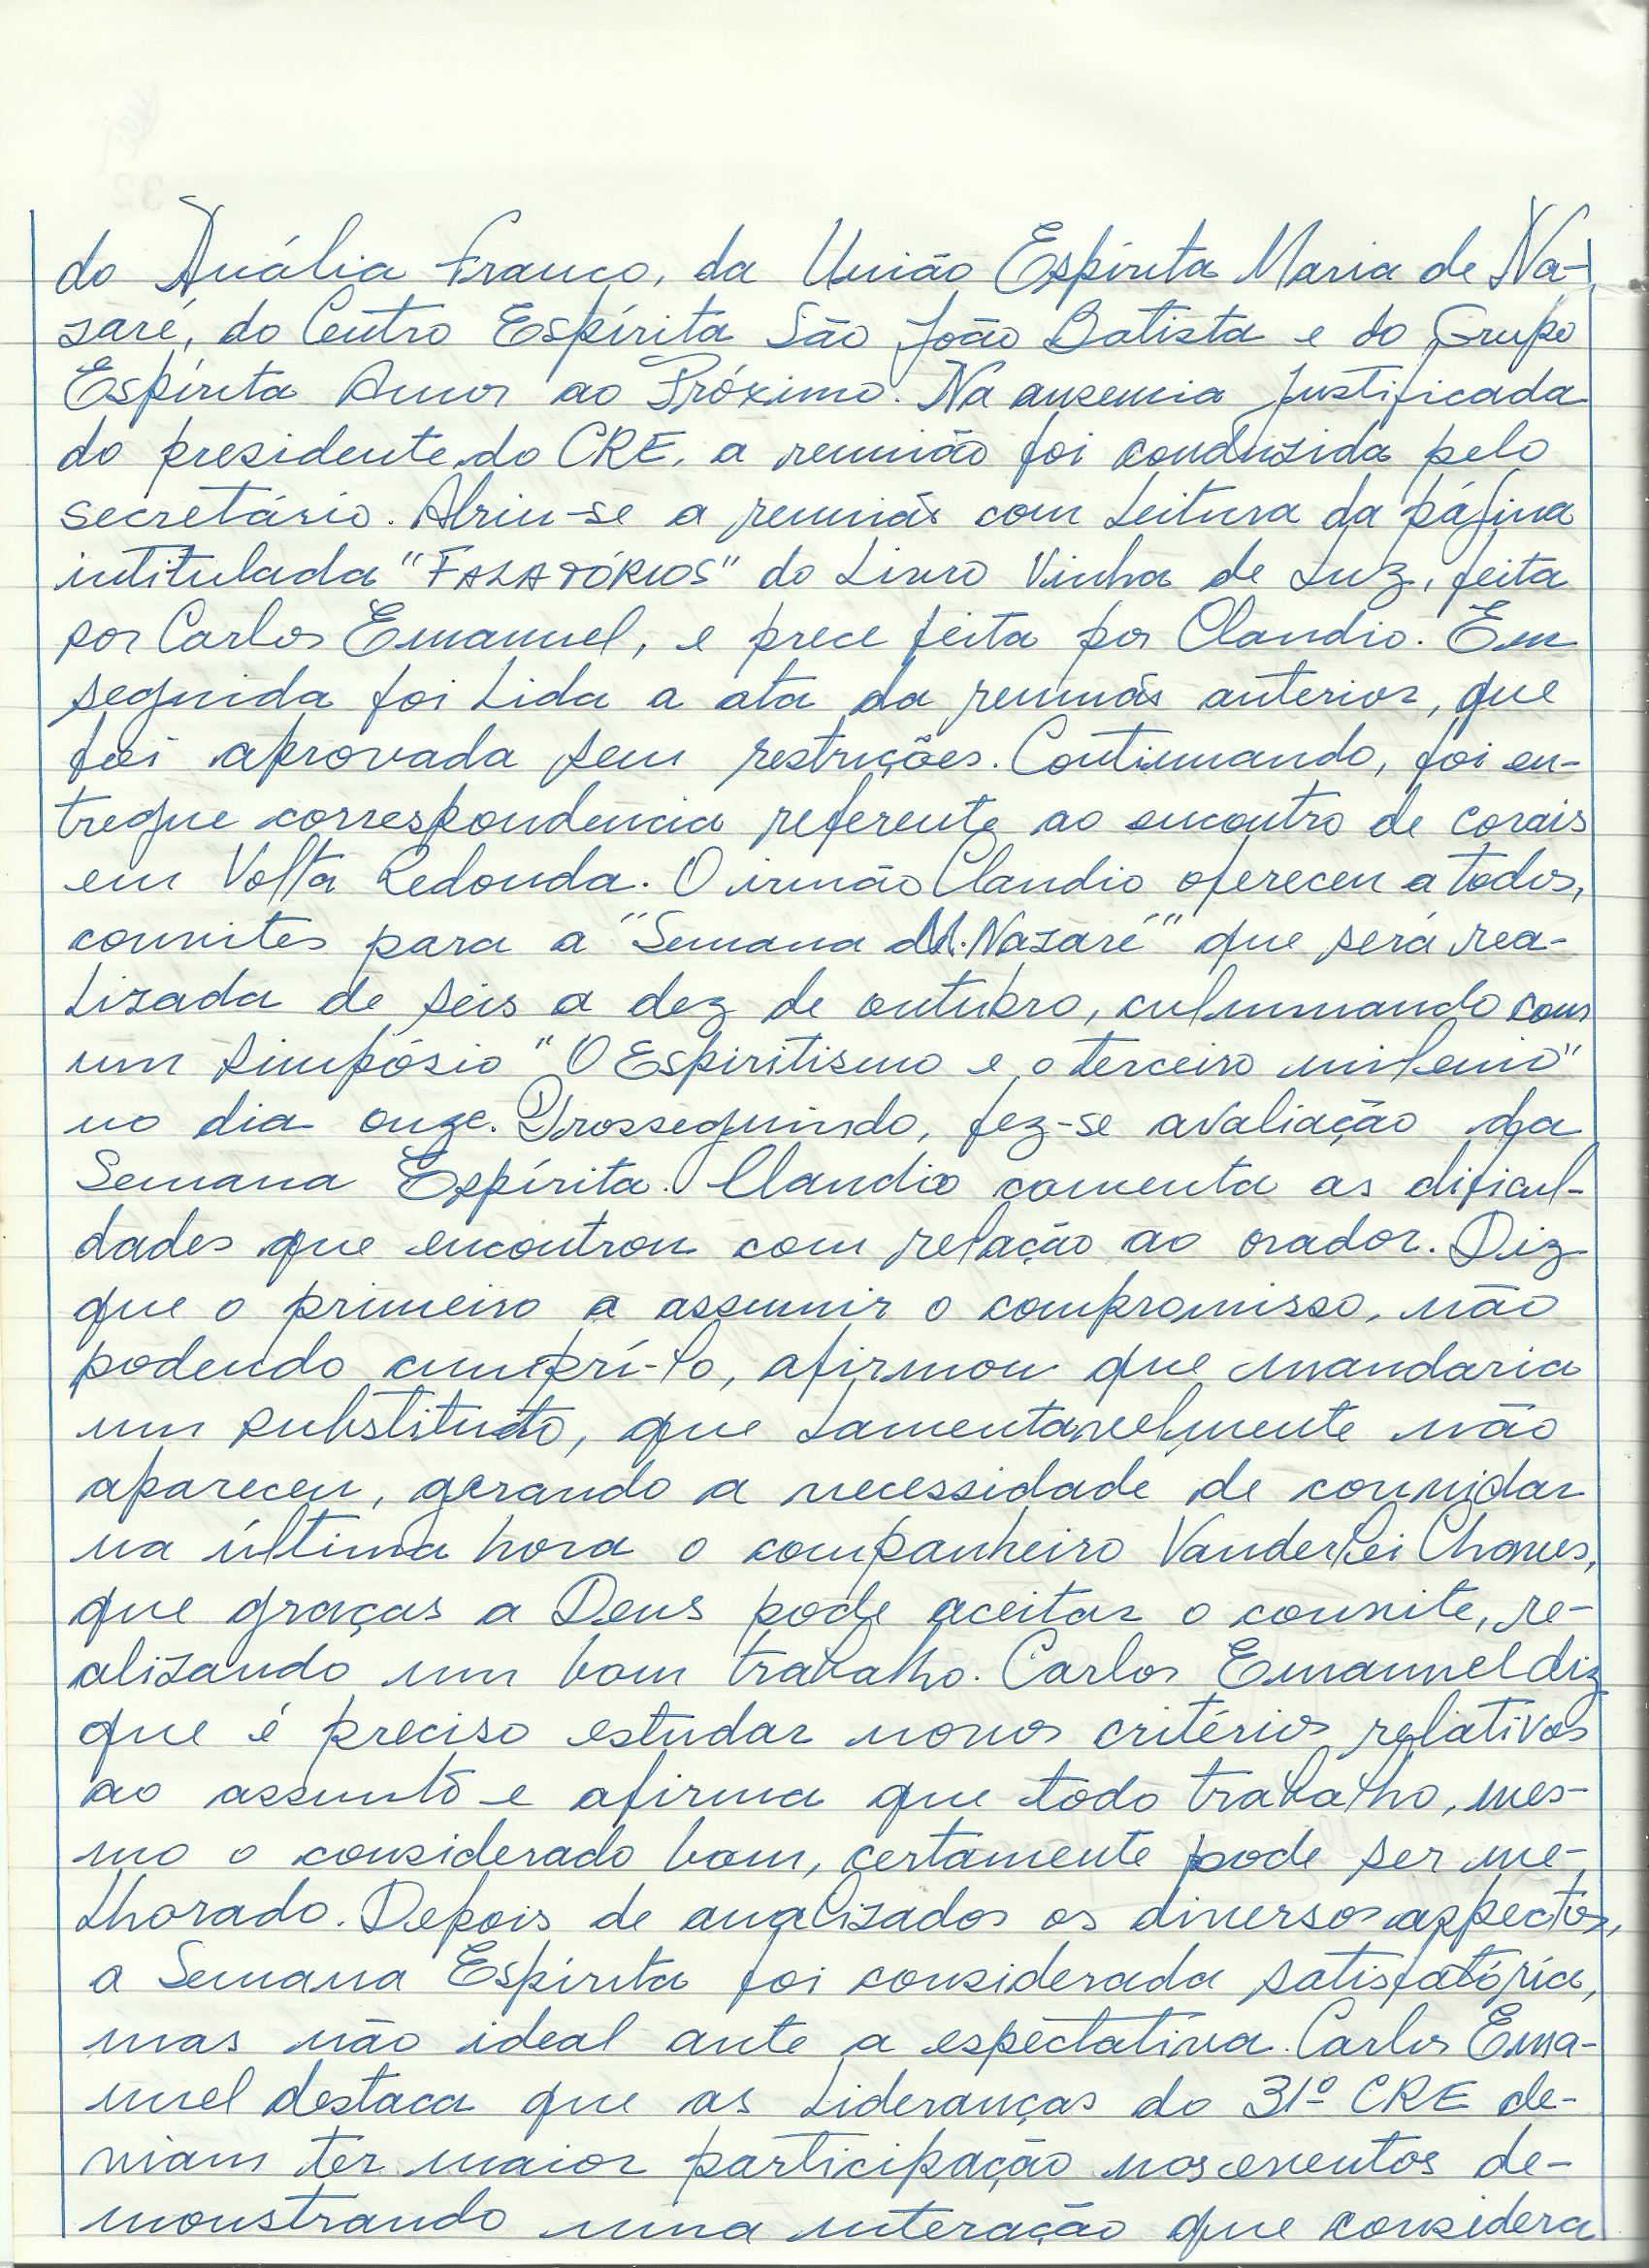 do Anália Franco, da União Espírita Maria de Na-
zaré, do Centro Espírita São João Batista e do Grupo
Espírita Amor ao Próximo. Na ausencia justificada
do presidente do CRE, a reunião foi conduzida pelo
secretário. Abriu-se a reunião com leitura da página
intitulada "FALATÓRIOS" do Livro Vinha de Luz, feita
por Carlos Emanuel, e prece feita por Claudio. Em
seguida foi lida a ata da reunião anterior, que
foi aprovada sem restrições. Continuando, foi en-
tregue correspondencia referente ao encontro de corais
em Volta Redonda. O irmão Claudio ofereceu a todos,
convites para a "Semana M. Nazaré" que será rea-
lizada de seis a dez de outubro, culminando com
um simpósio "O Espiritismo e o terceiro milenio"
no dia onze. Prosseguindo, fez-se avaliação da
Semana Espírita. Claudio comenta as dificul-
dades que encontrou com relação ao orador. Diz
que o primeiro a assumir o compromisso, não
podendo cumprí-lo, afirmou que mandaria
um substituto, que lamentavelmente não
apareceu, gerando a necessidade de convidar
na última hora o companheiro Vanderlei Chaves,
que graças a Deus pode aceitar o convite, re-
alizando um bom trabalho. Carlos Emanuel diz
que é preciso estudar novos critérios relativos
ao assunto e afirma que todo trabalho, mes-
mo o considerado bom, certamente pode ser me-
lhorado. Depois de analizados os diversos aspectos,
a Semana Espírita foi considerada satisfatória,
mas não ideal ante a espectativa. Carlos Ema-
nuel destaca que as lideranças do 31º CRE de-
viam ter maior participação nos eventos de-
monstrando uma interação que considera